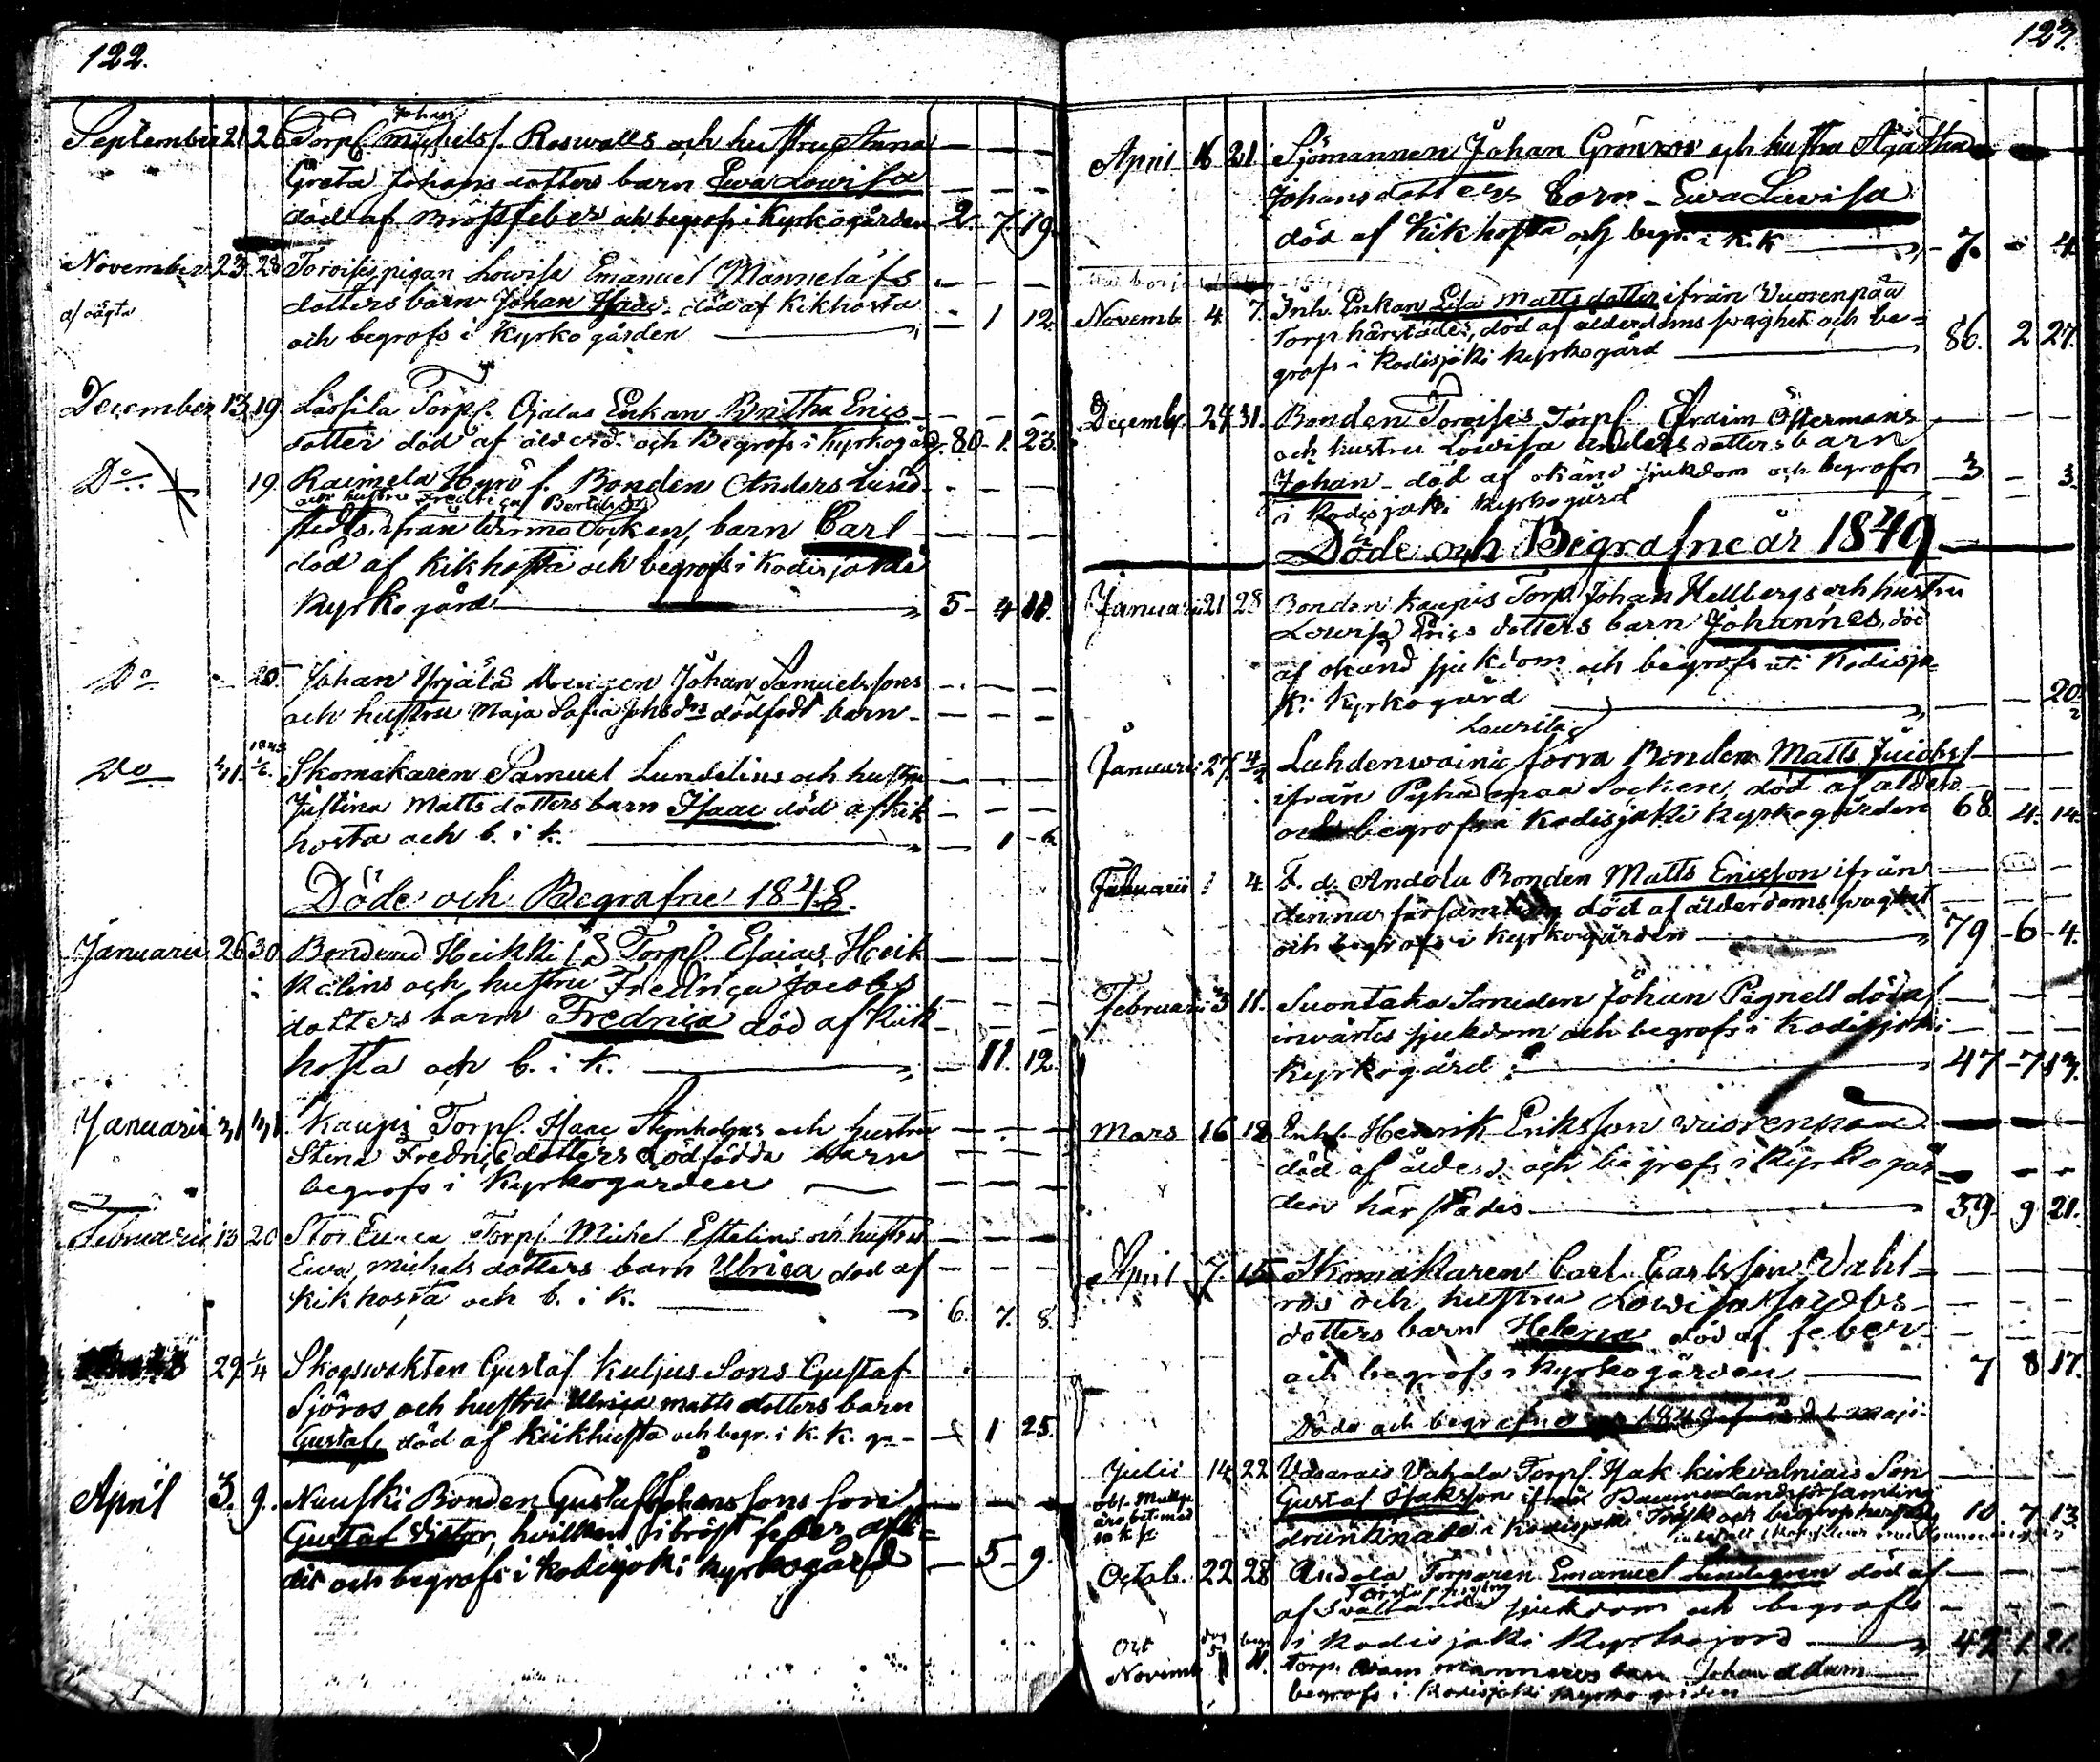 122.
September 21 26 Torpf. Johan Michelsf. Roswalls och hustru Anna
Greta Johansdotters barn Ewa Lowisa
död af Bröstfeber och begrofs i Kyrkogården 2. 7. 19.
November 23 28 Torvisis pigan Lowisa Emanuel Mannelafs
dotters barn Johan Isaac, död af Kikhosta 1 12.
och begrofs i Kyrkogården
December 13 19 Torpf. Ojalas Enkan Britha Erics
dotter död af ålderd. och Begrofs i Kyrkogård. 80. 1. 23.
Do 19. Raimela Hyrö f. Bonden Anders Lund
och hustru Fredrica Bertilsd.
stedts ifrån Urimo Socken, barn Carl
död af Kikhosta och begrofs i Kodisjoki
Kyrkogård 5 4 11.
Do 25. Johan Yrjälä Drengen Johan Samuelssons
och hustru Maja Safia Johsdrs dödfödt barn
Do 31. 1848 1/6. Skomakaren Samuel Lundelius och hustru
Justina Mattsdotters barn Isaac död af kik
hosta och b. i k. 1
Döde och Begrafne 1848.
Januarii 26 30 Heikki Torpf. Esaias Heik
kelins och hustru Fredrica Jacobs
dotters barn Fredrica död af Kiik
hosta och b. i k. 11. 12.
Januarii 31 31 Kaupis Torpf. Isaac Stenholms och hustru
Stina Fredricsdotters dödfödda barn
begrofs i Kyrkogården
Februarii 13 20 Stor Torpf. Michel Estelins och hustru
Ewa Michelsdotters barn Ulrica död af
Kikhosta och b. i K. 6. 7. 8.
29 1/4 Skogswakten Gustaf Kuljus Sons Gustaf
Sjöros och hustru Ulrica Mattsdotters barn
Gustaf, död af Kiikhosta och begr. i K. K. g 1 25.
April 3. 9. Nauski Bonden Gustaf Johanssons son
Gustaf Victor, hvilken i bröst feber afli=
dit och begrofs i Kodisjoki Kyrkogård 5 9.
123.
April 16 21 Sjömannen Johan Grönroos och hustru Agatha
Johansdotters barn Ewa Lovisa
död af Kikhosta och begr. i K.K 7. 4
Novemb. 4 7. Inh. Enkan Lisa Mattsdotter ifrån Vuorenpää
Torp härstädes, död af ålderdoms svaghet och be=
grofs i Kodisjoki Kyrkogård 86. 2 27.
Decemb. 24 31. Bonden Torvisis Torpf. Efraim Östermans
och hustru Lowisa Andersdotters barn
Johan död af okänd sjukdom och begrofs 3 3.
i Kodisjoki Kyrkogård
Döde och Begrafne år 1849
Januari 21 28 Bonden Kaupis Torp. Johan Hellbergs och hustru
Lowisa Ericsdotters barn Johannes, död
af okänd sjukdom och begrofs uti Kodisjo
ki Kyrkogård 20
Januari 27. 4/2 Lahdenwainio Laurila förra Bonden Matts Jacobs.
ifrån Pyhämaa Socken, död af ålderd.
och begrofs i Kodisjoki Kyrkogården 68 4. 14
Februarii 1 4 F. d. Andola Bonden Matts Ericsson ifrån
denna församling död af ålderdoms svaghet
och begrofs i Kyrkogården 79 6 4.
Februari 3 11. Suontaka Smeden Johan Pagnell död af
invärtes sjukdom och begrofs i Kodisjoki
Kyrkogård 47 7 13.
Mars 16 18 Enkl. Henrik Eriksson Vuorenpää
död af ålderd. och begrofs i Kyrkogår
den härstädes 59 9 21.
April 7. 15 Skomakaren Carl Carlsson Vahl=
ros och hustru Lowisa Jacobs
dotters barn Helena död af feber
och begrofs i Kyrkogården 7 8 17.
Döde och begrafne
Julii 14 22 Torpf. Isak Son
Gustaf Isaksson ifrån församling 10 7 13.
drunknade i Kodisjoki Träsk och
Octob. 22 28 Andola Torparen Emanuel Lindegren död af
af sjukdom och begrofs
i Kodisjoki Kyrkojord 42 1 21.
Oct
Novemb Torp. barn Johan Adam
begrofs i Kodisjoki Kyrkogården